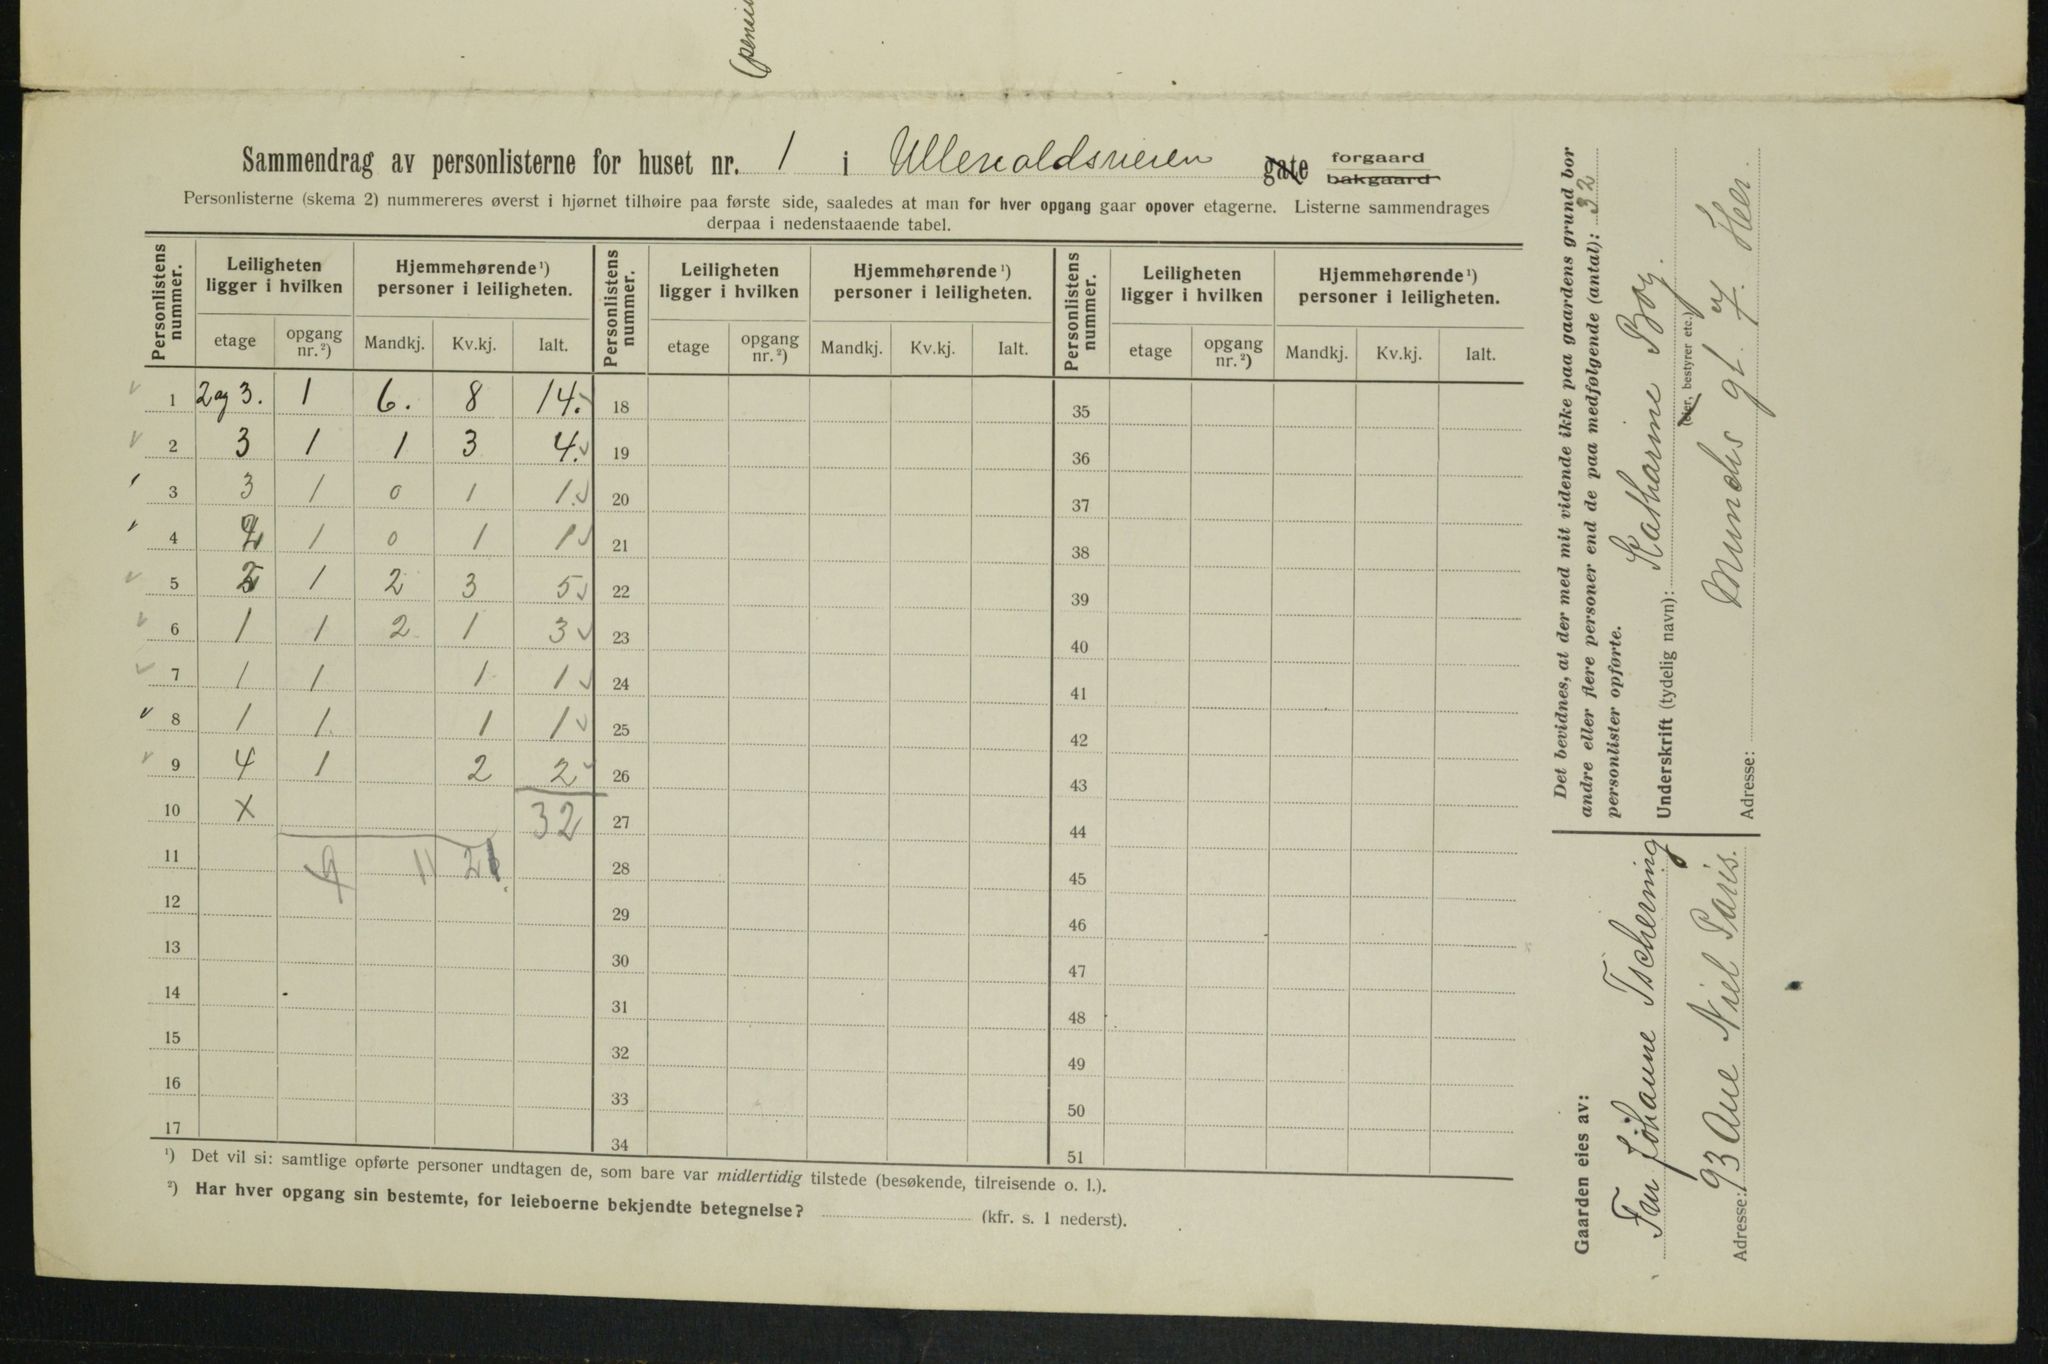 (pensi
Sammendrag av personlisterne for huset nr. 1 i Ullevoldsveien gate forgaard bakgaard
Personlisterne (skema 2) nummereres øverst i hjørnet tilhøire paa første side, saaledes at man for hver opgang gaar opover etagerne. Listerne sammendrages
derpaa i nedenstaaende tabel.
Personlistens nummer. Leiligheten ligger i hvilken Hjemmehørende¹) personer i leiligheten. Personlistens nummer. Leiligheten ligger i hvilken Hjemmehørende¹) personer i leiligheten. Personlistens nummer. Leiligheten ligger i hvilken Hjemmehørende¹) personer i leiligheten.
etage opgang nr.²) Mandkj. Kv.kj. Ialt. etage opgang nr.²) Mandkj. Kv.kj. Ialt. etage opgang nr.²) Mandkj. Kv.kj. Ialt.
1 2 og 3. 1 6. 8 14. 18 35
2 3 1 1 3 4. 19 36
3 3 1 0 1 1. 20 37
4 2 1 0 1 1 21 38
5 2 1 2 3 5 22 39
6 1 1 2 1 3 23 40
7 1 1 1 1 24 41
8 1 1. 1 1 25 42
9 4 1 2 2 26 43
10 x 32 27 44
11 9 11 21. 28 45
12 29 46
13 30 47
14 31 48
15 32 49
16 33 50
17 34 51
¹) Det vil si: samtlige opførte personer undtagen de, som bare var midlertidig tilstede (besøkende, tilreisende o. l.).
²) Har hver opgang sin bestemte, for leieboerne bekjendte betegnelse? (kfr. s. 1 nederst).
Det bevidnes, at der med mit vidende ikke paa gaardens grund bor
andre eller flere personer end de paa medfølgende (antal): 32
personlister opførte.
Underskrift (tydelig navn): Katharine Boy.
(eier, bestyrer etc.)
Adresse: Munchs gt. 7. Heri.
Gaarden eies av:
Fru Johanne Tscherning
Adresse: 93 Ave Niel Paris.